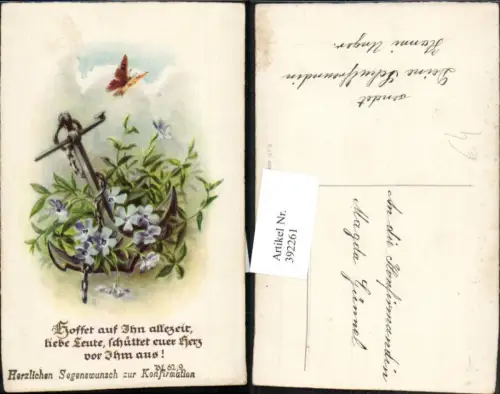 Hoffet auf Ihn allezeit,
liebe Leute, schüttet euer Herz
vor Ihm aus!
Ps. 62, 9.
Herzlichen Segenswunsch zur Konfirmation
Artikel Nr.
392261
sendet
Deine Schulfreundin
Hanni Unger.
An die Konfirmandin
Magda Hünnel